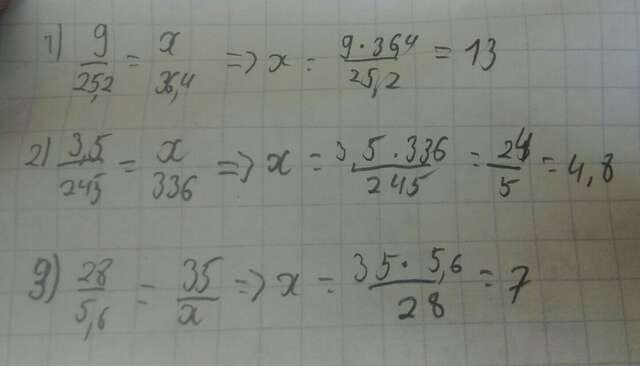 1) 9/25,2 = x/36,4 => x = 9·36,4/25,2 = 13
2) 3,5/245 = x/336 => x = 3,5·336/245 = 24/5 = 4,8
3) 28/5,6 = 35/x => x = 35·5,6/28 = 7